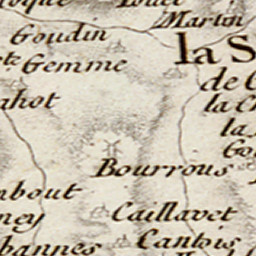 Martin
Goudin
la S
Gemme
de C
ahot
la C
la
Go
Bourrous
bout
Caillavet
ney
Cantois
bannes